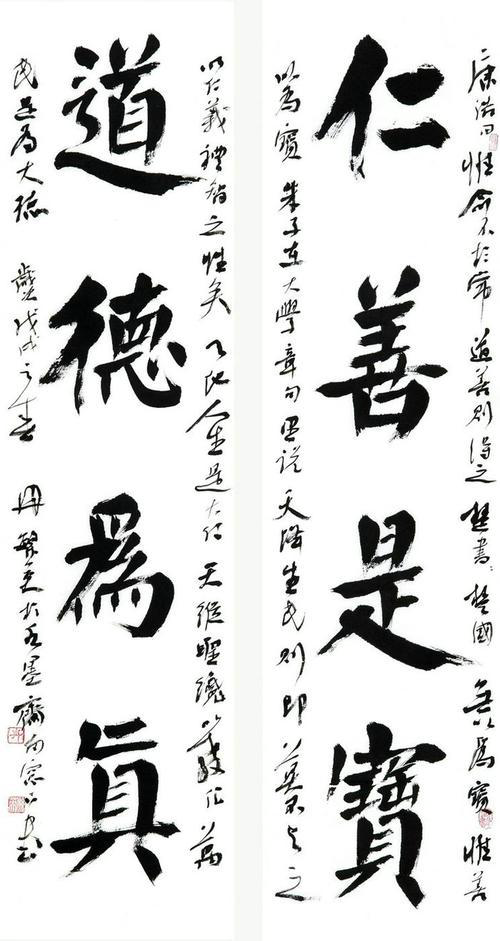 康誥曰惟命不於常道善則得之楚書楚國無以爲寶惟善
仁善是寶
以爲寶朱子在大學章句里说天降生民則即莫不与之
以仁義禮智之性矣人生是天縱聖以教化萬
道德爲真
民是爲大德歲戊戌之春於墨齋南窓